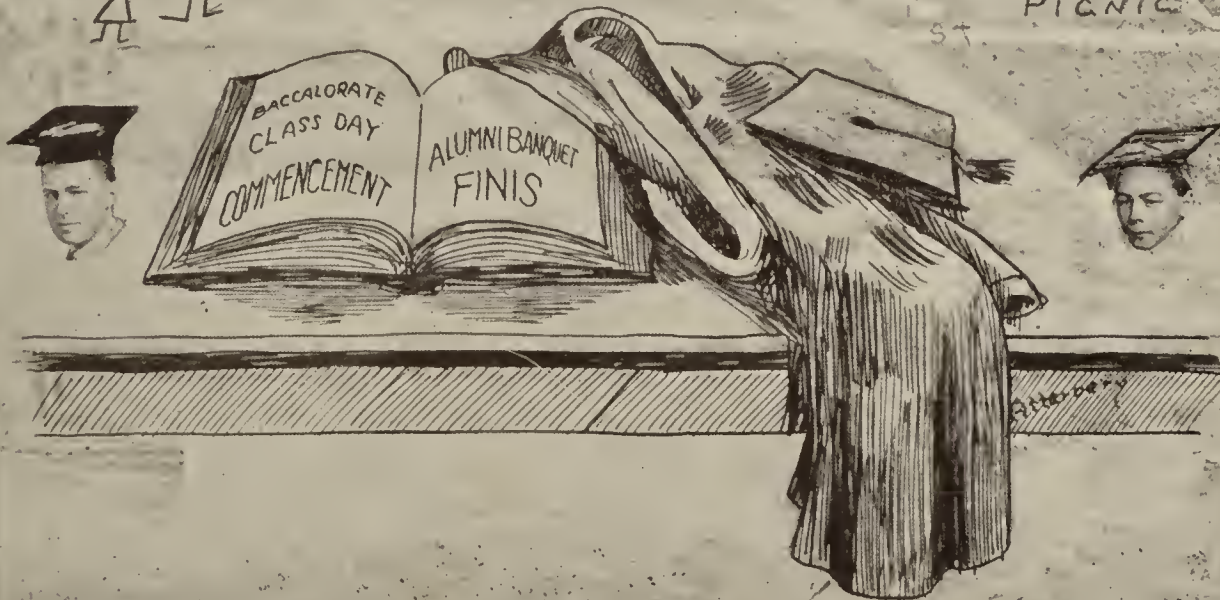 PICNIC
ST.
BACCALORATE
CLASS DAY
COMMENCEMENT
ALUMNI BANQUET
FINIS